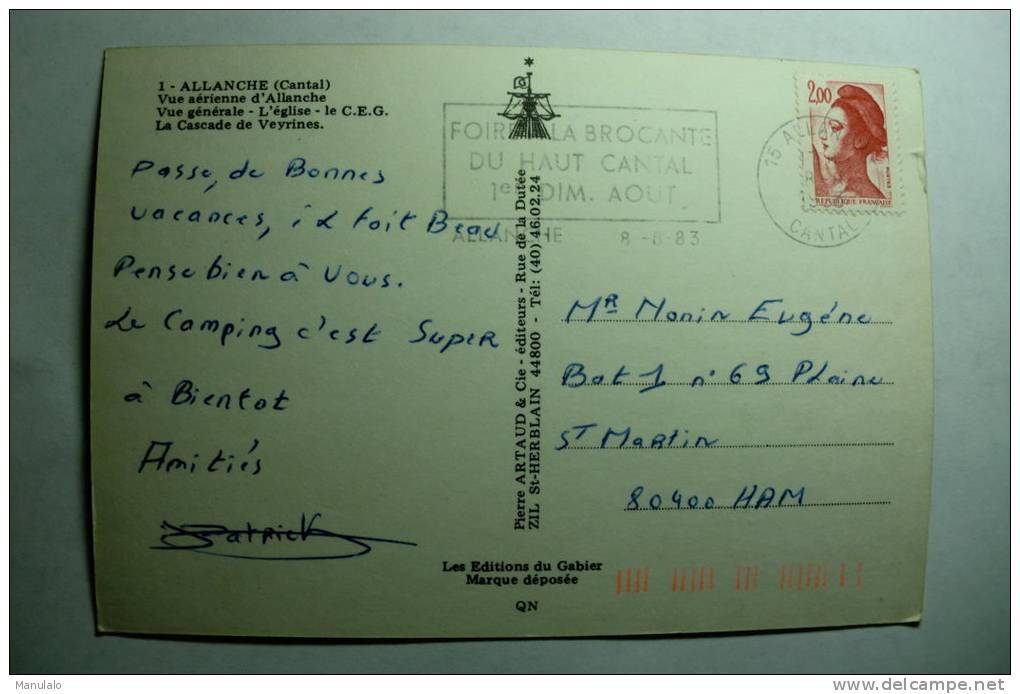 1 - ALLANCHE (Cantal)
Vue aérienne d'Allanche
Vue générale - L'église - le C.E.G.
La Cascade de Veyrines.
Passe, de Bonnes
Vacances, il fait Beau
Pense bien à Vous.
Le Camping c'est Super
à Bientot
Amitiés
Patrick
Pierre ARTAUD & Cie - éditeurs - Rue de la Dutée
ZIL St-HERBLAIN 44800 - Tél: (40) 46.02.24
Les Editions du Gabier
Marque déposée
QN
FOIRE LA BROCANTE
DU HAUT CANTAL
1er DIM. AOUT
ALLANCHE 8-8-83
15 ALLAN
CANTAL
2,00
REPUBLIQUE FRANÇAISE
Mr Monin Eugéne
Bat 1 n° 69 Plaine
St Martin
80400 HAM
Manulalo
www.delcampe.net